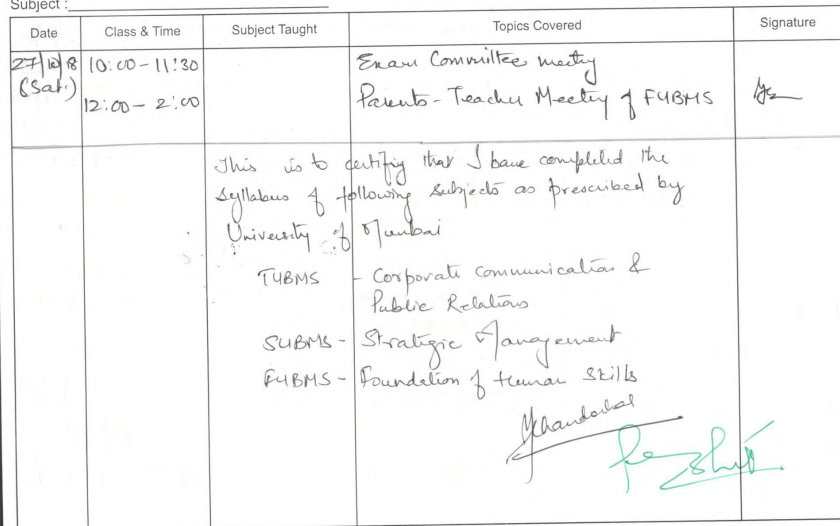 Subject :
Date Class & Time Subject Taught Topics Covered Signature
27/10/18 10:00 - 11:30 Exam Committee meeting
(Sat.)
12:00 - 2:00 Parents - Teacher Meeting of FYBMS
This is to certifiy that I have completed the
Syllabus of following subjects as prescribed by
University of Mumbai
TYBMS - Corporate Communication &
Public Relations
SYBMS - Strategic Management
FYBMS - Foundation of Human Skills